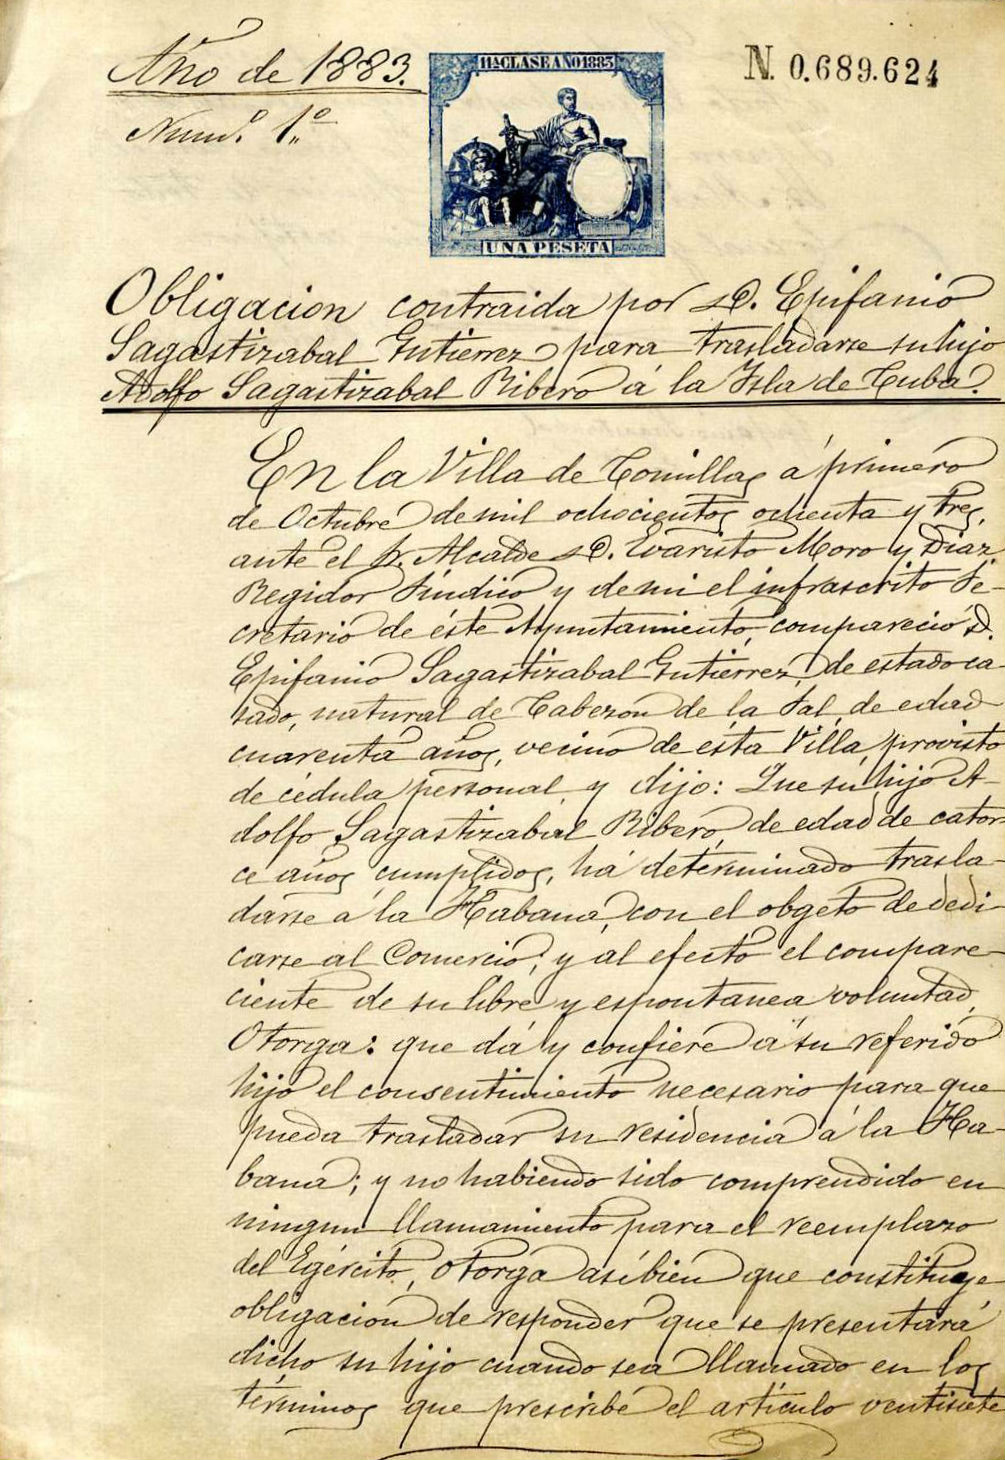 Año de 1883.
11ª CLASE AÑO 1883
N. 0.689.624
Numº 1º
UNA PESETA
Obligacion contraida por D. Epifanio
Sagastizabal Gutierrez para trasladarse su hijo
Adolfo Sagastizabal Ribero á la Isla de Cuba.
En la Villa de Comillas á primero
de Octubre de mil ochocientos ochenta y tres,
ante el Sr. Alcalde D. Evaristo Moro y Diaz
Regidor Síndico y de mi el infrascrito Se-
cretario de éste Ayuntamiento, compareció D.
Epifanio Sagastizabal Gutiérrez, de estado ca-
sado, natural de Cabezon de la Sal, de edad
cuarenta años, vecino de ésta Villa, provisto
de cédula personal, y dijo: Que su hijo A-
dolfo Sagastizabal Ribero, de edad de cator-
ce años cumplidos, há determinado trasla-
darse a la Habana, con el obgeto de dedi-
carse al Comercio; y al efecto el compare-
ciente de su libre y espontanea voluntad,
Otorga: que dá y confiere á su referido
hijo el consentimiento necesario para que
pueda trasladar su residencia á la Ha-
bana; y no habiendo sido comprendido en
ningun llamamiento para el reemplazo
del Egército, otorga asíbien que constituye
obligacion de responder que se presentará
dicho su hijo cuando sea llamado en los
términos que prescribe el artículo ventisiete